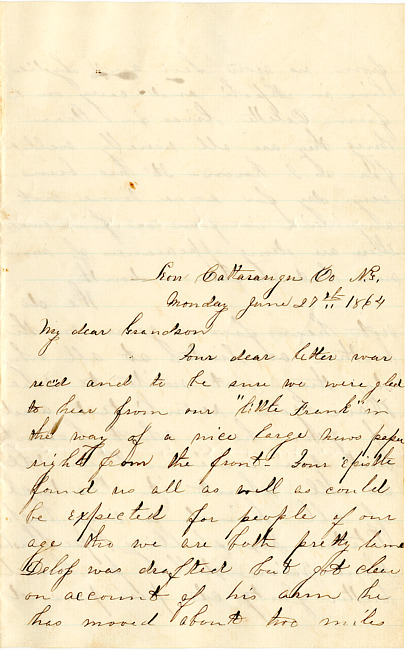 Leon Cattaraugu Co N.Y.
Monday June 27th 1864
My dear Grandson
Your dear letter was
rec'd and to be sure we were glad
to hear from our "little Frank" in
the way of a nice large news paper
right from the front - Your epistle
found us all as well as could
be expected for people of our
age tho we are both pretty lame
Delos was drafted but got clear
on account of his arm he
has mooved about two miles